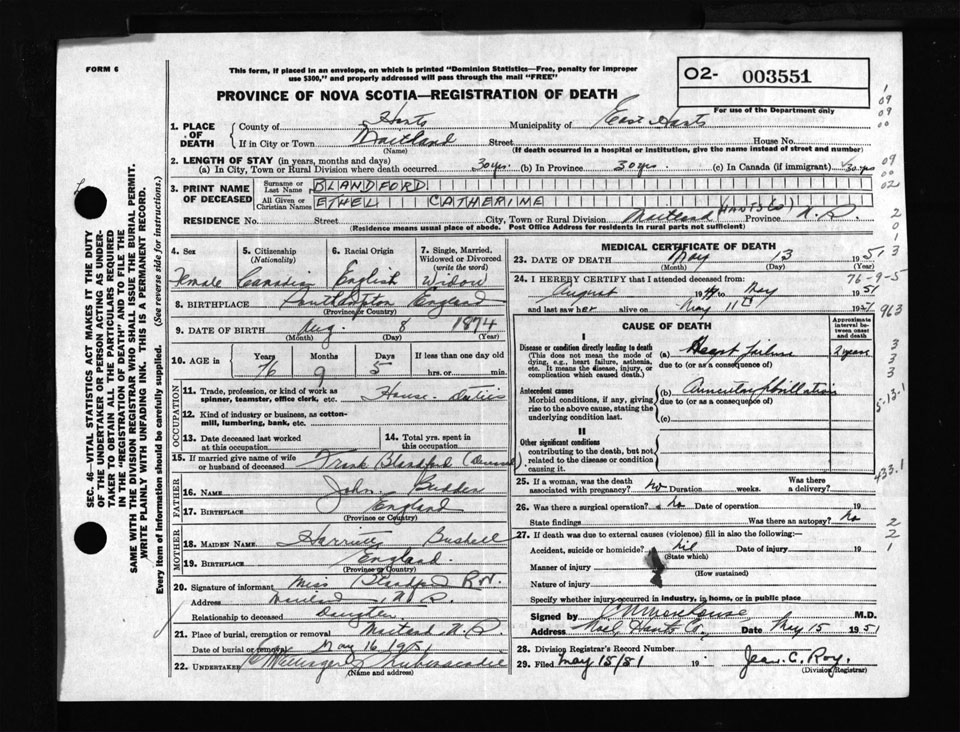 FORM 6
This form, if placed in an envelope, on which is printed "Dominion Statistics—Free, penalty for improper
use $300," and properly addressed will pass through the mail "FREE"
O2- 003551
For use of the Department only
PROVINCE OF NOVA SCOTIA—REGISTRATION OF DEATH
1. PLACE OF DEATH
County of Hants Municipality of East Hants
If in City or Town Maitland Street House No.
(Name) (If death occurred in a hospital or institution, give the name instead of street and number)
2. LENGTH OF STAY (in years, months and days)
(a) In City, Town or Rural Division where death occurred 30 yrs. (b) In Province 30 yrs. (c) In Canada (if immigrant) 30 yrs
3. PRINT NAME OF DECEASED
Surname or Last Name BLANDFORD
All Given or Christian Names ETHEL CATHERINE
RESIDENCE No. Street City, Town or Rural Division Maitland (HANTS CO) Province N.S.
(Residence means usual place of abode. Post Office Address for residents in rural parts not sufficient)
4. Sex Female
5. Citizenship (Nationality) Canadian
6. Racial Origin English
7. Single, Married, Widowed or Divorced (write the word) Widow
8. BIRTHPLACE Southampton England
(Province or Country)
9. DATE OF BIRTH Aug. 8 1874
(Month) (Day) (Year)
10. AGE in Years Months Days If less than one day old
76 9 5 hrs. or min.
OCCUPATION
11. Trade, profession, or kind of work as spinner, teamster, office clerk, etc. House Duties
12. Kind of industry or business, as cotton-mill, lumbering, bank, etc.
13. Date deceased last worked at this occupation
14. Total yrs. spent in this occupation
15. If married give name of wife or husband of deceased Frank Blandford (Deceased)
FATHER
16. NAME John Budden
17. BIRTHPLACE England
(Province or Country)
MOTHER
18. MAIDEN NAME Harriett Bushell
19. BIRTHPLACE England
(Province or Country)
20. Signature of informant Miss Blandford R.N.
Address Maitland, N.S.
Relationship to deceased Daughter
21. Place of burial, cremation or removal Maitland N.S.
Date of burial or removal May 16, 1951
22. UNDERTAKER Shubenacadie
(Name and address)
SEC. 46—VITAL STATISTICS ACT MAKES IT THE DUTY
OF THE UNDERTAKER OR PERSON ACTING AS UNDER-
TAKER TO OBTAIN ALL THE PARTICULARS REQUIRED
IN THE "REGISTRATION OF DEATH" AND TO FILE THE
SAME WITH THE DIVISION REGISTRAR WHO SHALL ISSUE THE BURIAL PERMIT.
WRITE PLAINLY WITH UNFADING INK. THIS IS A PERMANENT RECORD.
Every item of information should be carefully supplied. (See reverse side for instructions.)
MEDICAL CERTIFICATE OF DEATH
23. DATE OF DEATH May 13 1951
(Month) (Day) (Year)
76-9-5
24. I HEREBY CERTIFY that I attended deceased from:
August 19 to May 1951
and last saw her alive on May 11th 1951
CAUSE OF DEATH
Approximate interval between onset and death
I
Disease or condition directly leading to death
(This does not mean the mode of dying, e.g., heart failure, asthenia, etc. It means the disease, injury, or complication which caused death.)
(a) Heart failure 2 years
due to (or as a consequence of)
Antecedent causes
Morbid conditions, if any, giving rise to the above cause, stating the underlying condition last.
(b) Auricular fibrillation
due to (or as a consequence of)
(c)
II
Other significant conditions
contributing to the death, but not related to the disease or condition causing it.
25. If a woman, was the death associated with pregnancy? No Duration weeks. Was there a delivery?
26. Was there a surgical operation? No Date of operation 19
State findings Was there an autopsy? No
27. If death was due to external causes (violence) fill in also the following:—
Accident, suicide or homicide? Nil Date of injury 19
(State which)
Manner of injury
(How sustained)
Nature of injury
Specify whether injury occurred in industry, in home, or in public place
Signed by Morehouse M.D.
Address Noel, Hants Co. Date May 15 1951
28. Division Registrar's Record Number
29. Filed May 15/51 19 Jean. C. Roy.
(Division Registrar)
1
09
09
00
09
00
02
2
0
1
3
963
3
3
3
5-13.1
433.1
2
2
1